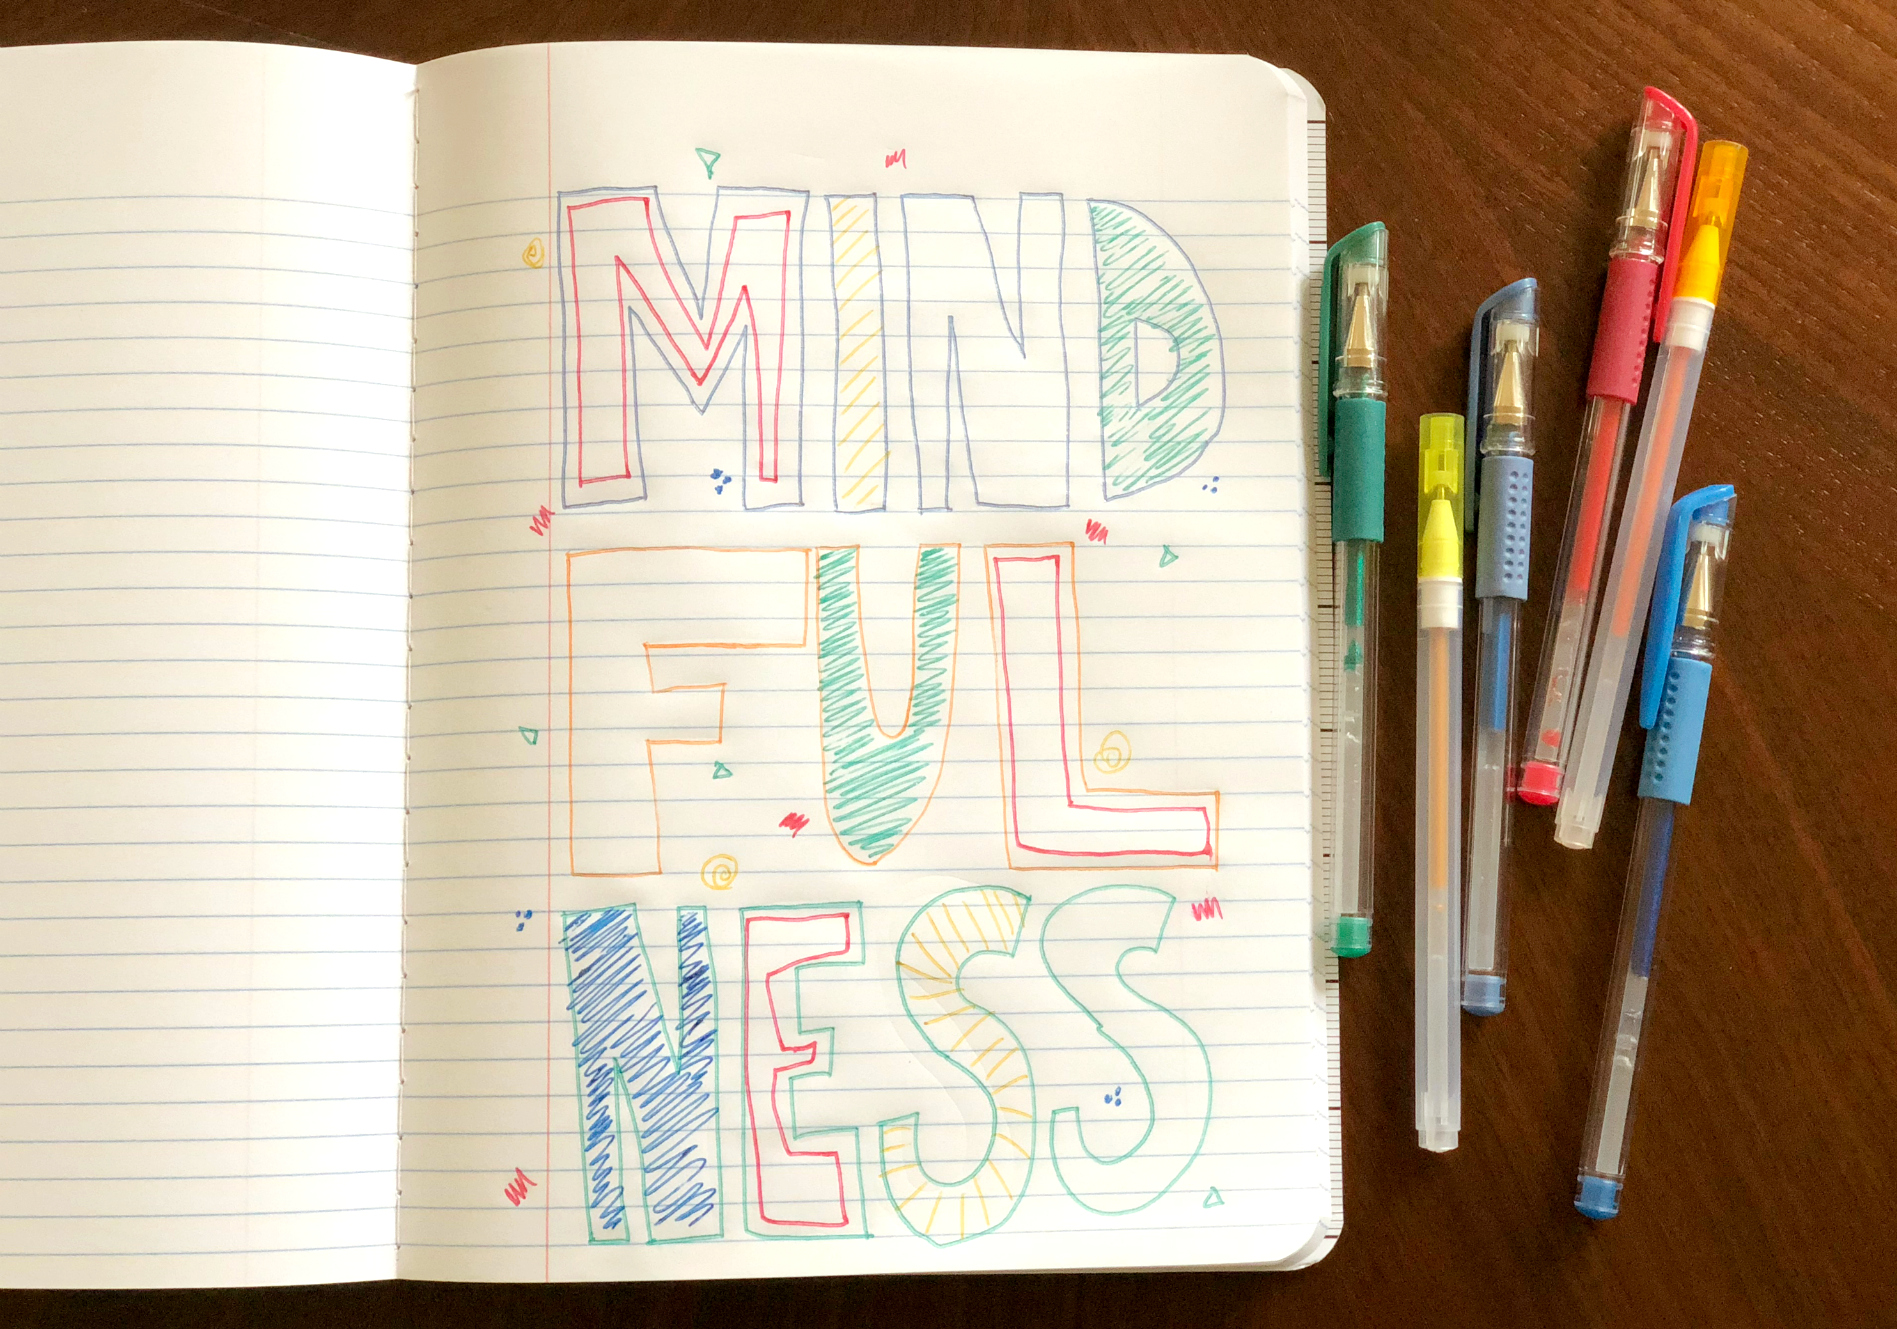 MIND
FUL
NESS